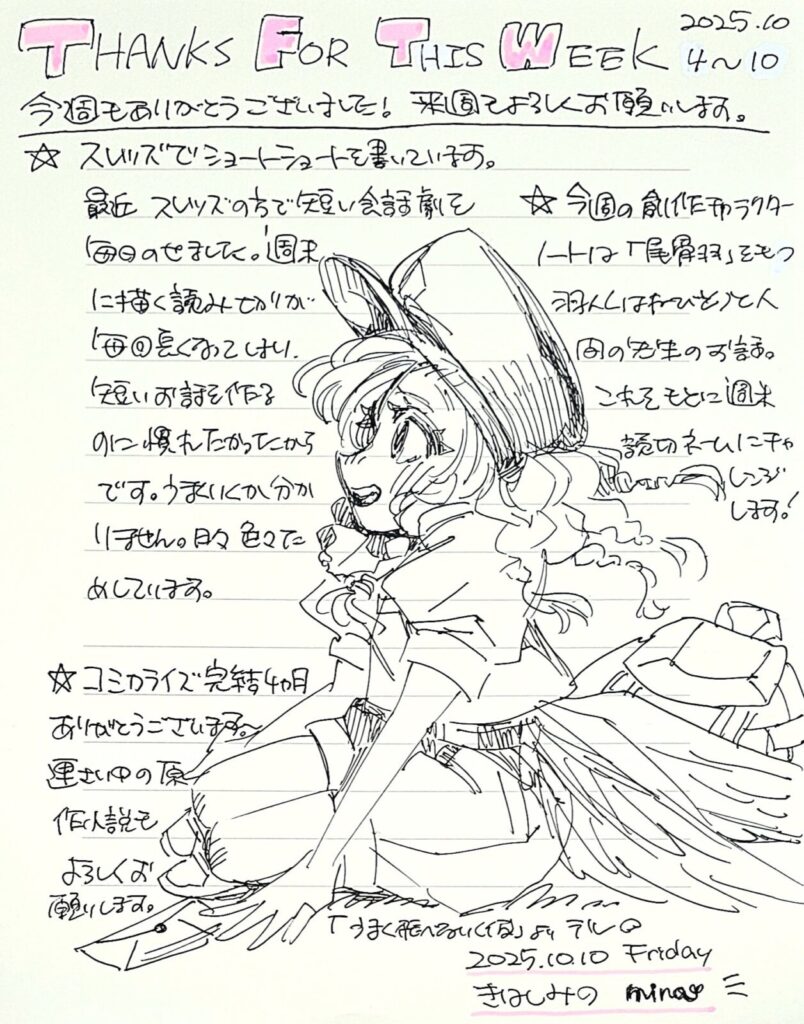 THANKS FOR THIS WEEK
2025.10
4～10
今週もありがとうございました！ 来週もよろしくお願いします。
☆ スレッズでショートショートを書いています。
最近 スレッズの方で短い会話劇を
毎日のせました。週末
に描く読みきりが
毎回長くなってしまい、
短いお話を作る
のに慣れたかったから
です。うまくいくか分か
りません。日々色々た
めしています。
☆ 今週の創作キャラクター
ノートは「尾骨羽」をもつ
羽人(はねびと)と人
間の先生のお話。
これをもとに週末
読切ネームにチャ
レンジ
します！
☆ コミカライズ完結4ヵ月
ありがとうございます～
運さい中の原
作小説も
よろしくお
願いします。
「うまく飛べない
より
2025.10.10 Friday
きはしみの mina